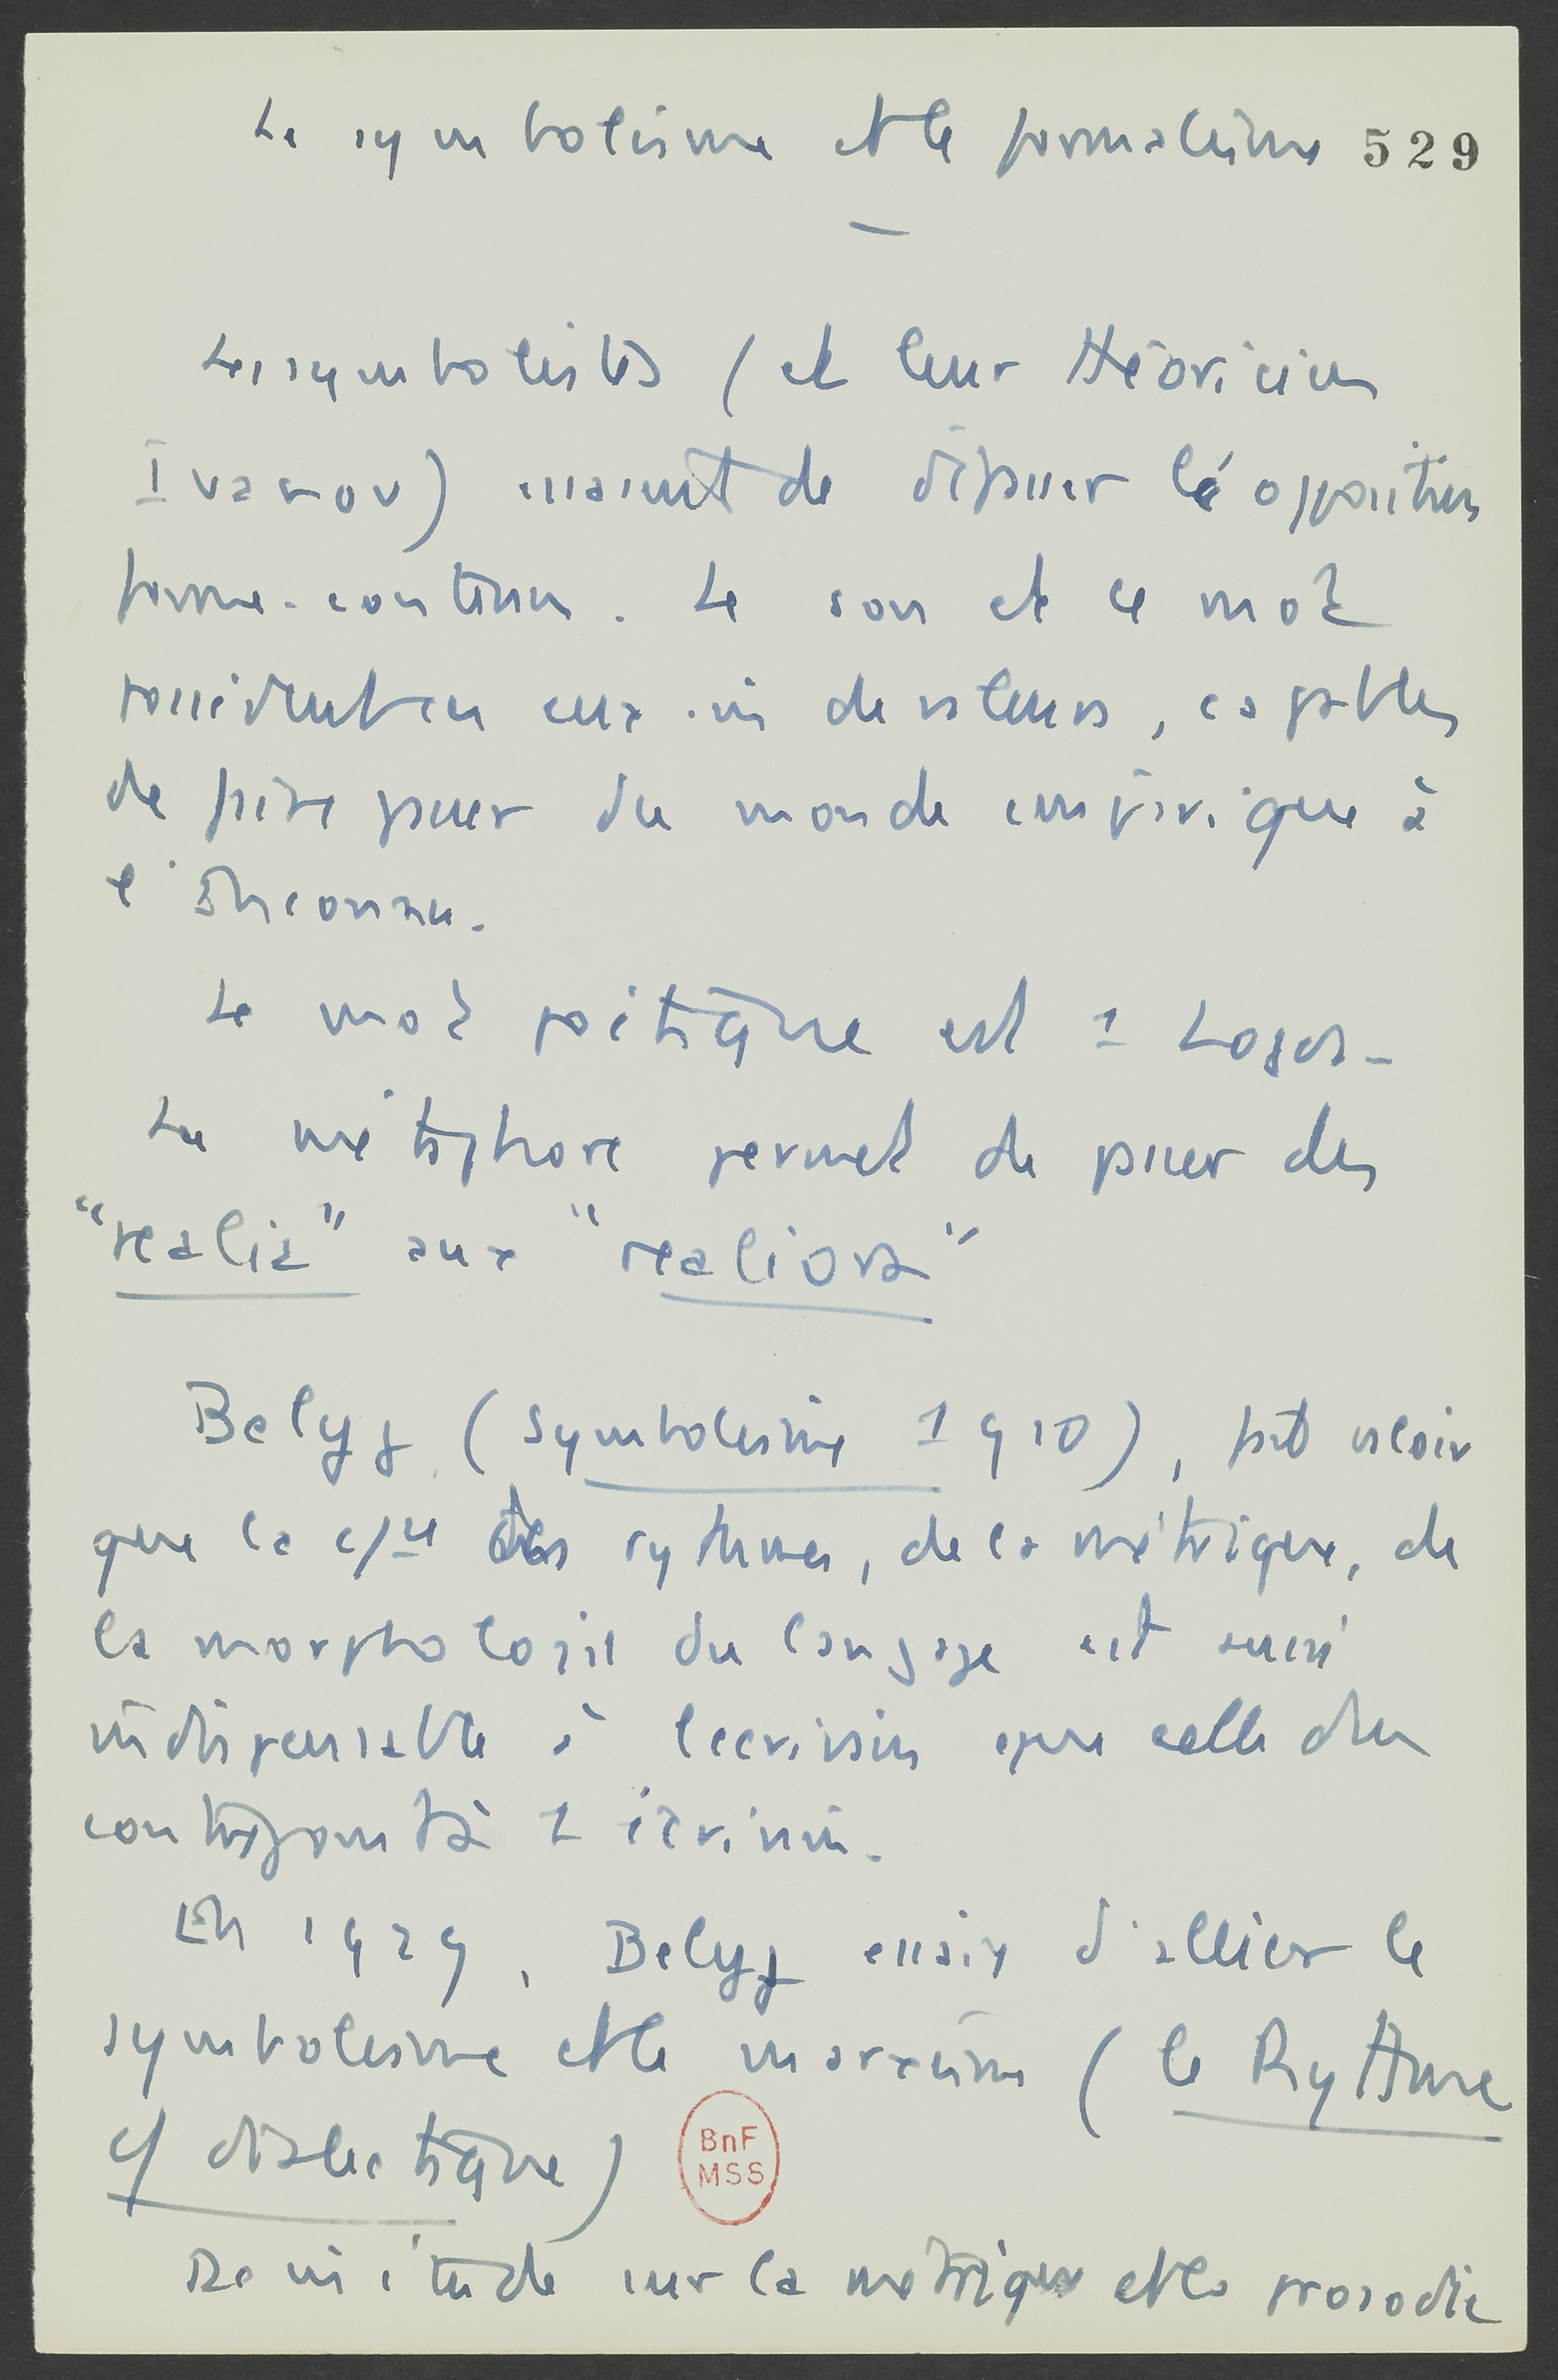 Le symbolisme et le formalisme 529
Les symbolistes (et leur théoricien
Ivanov) essaient de dépasser l'opposition
forme-contenu. Le son et le mot
possèdent en eux-m de valeurs, capables
de faire passer du monde empirique à
l'Inconnu.
Le mot poétique est 1 Logos -
La métaphore permet de passer des
"realia" aux "realiora"
Belyj (Symbolisme 1910), fait valoir
que la des rythmes, de la métrique, de
la morphologie du langage est aussi
indispensable à l'écrivain que celle du
contrepoint à 1
En 1929, Belyj essaie d'allier le
symbolisme et le marxisme (le Rythme
c/ dialectique)
BnF
MSS
étude sur la métrique et la prosodie